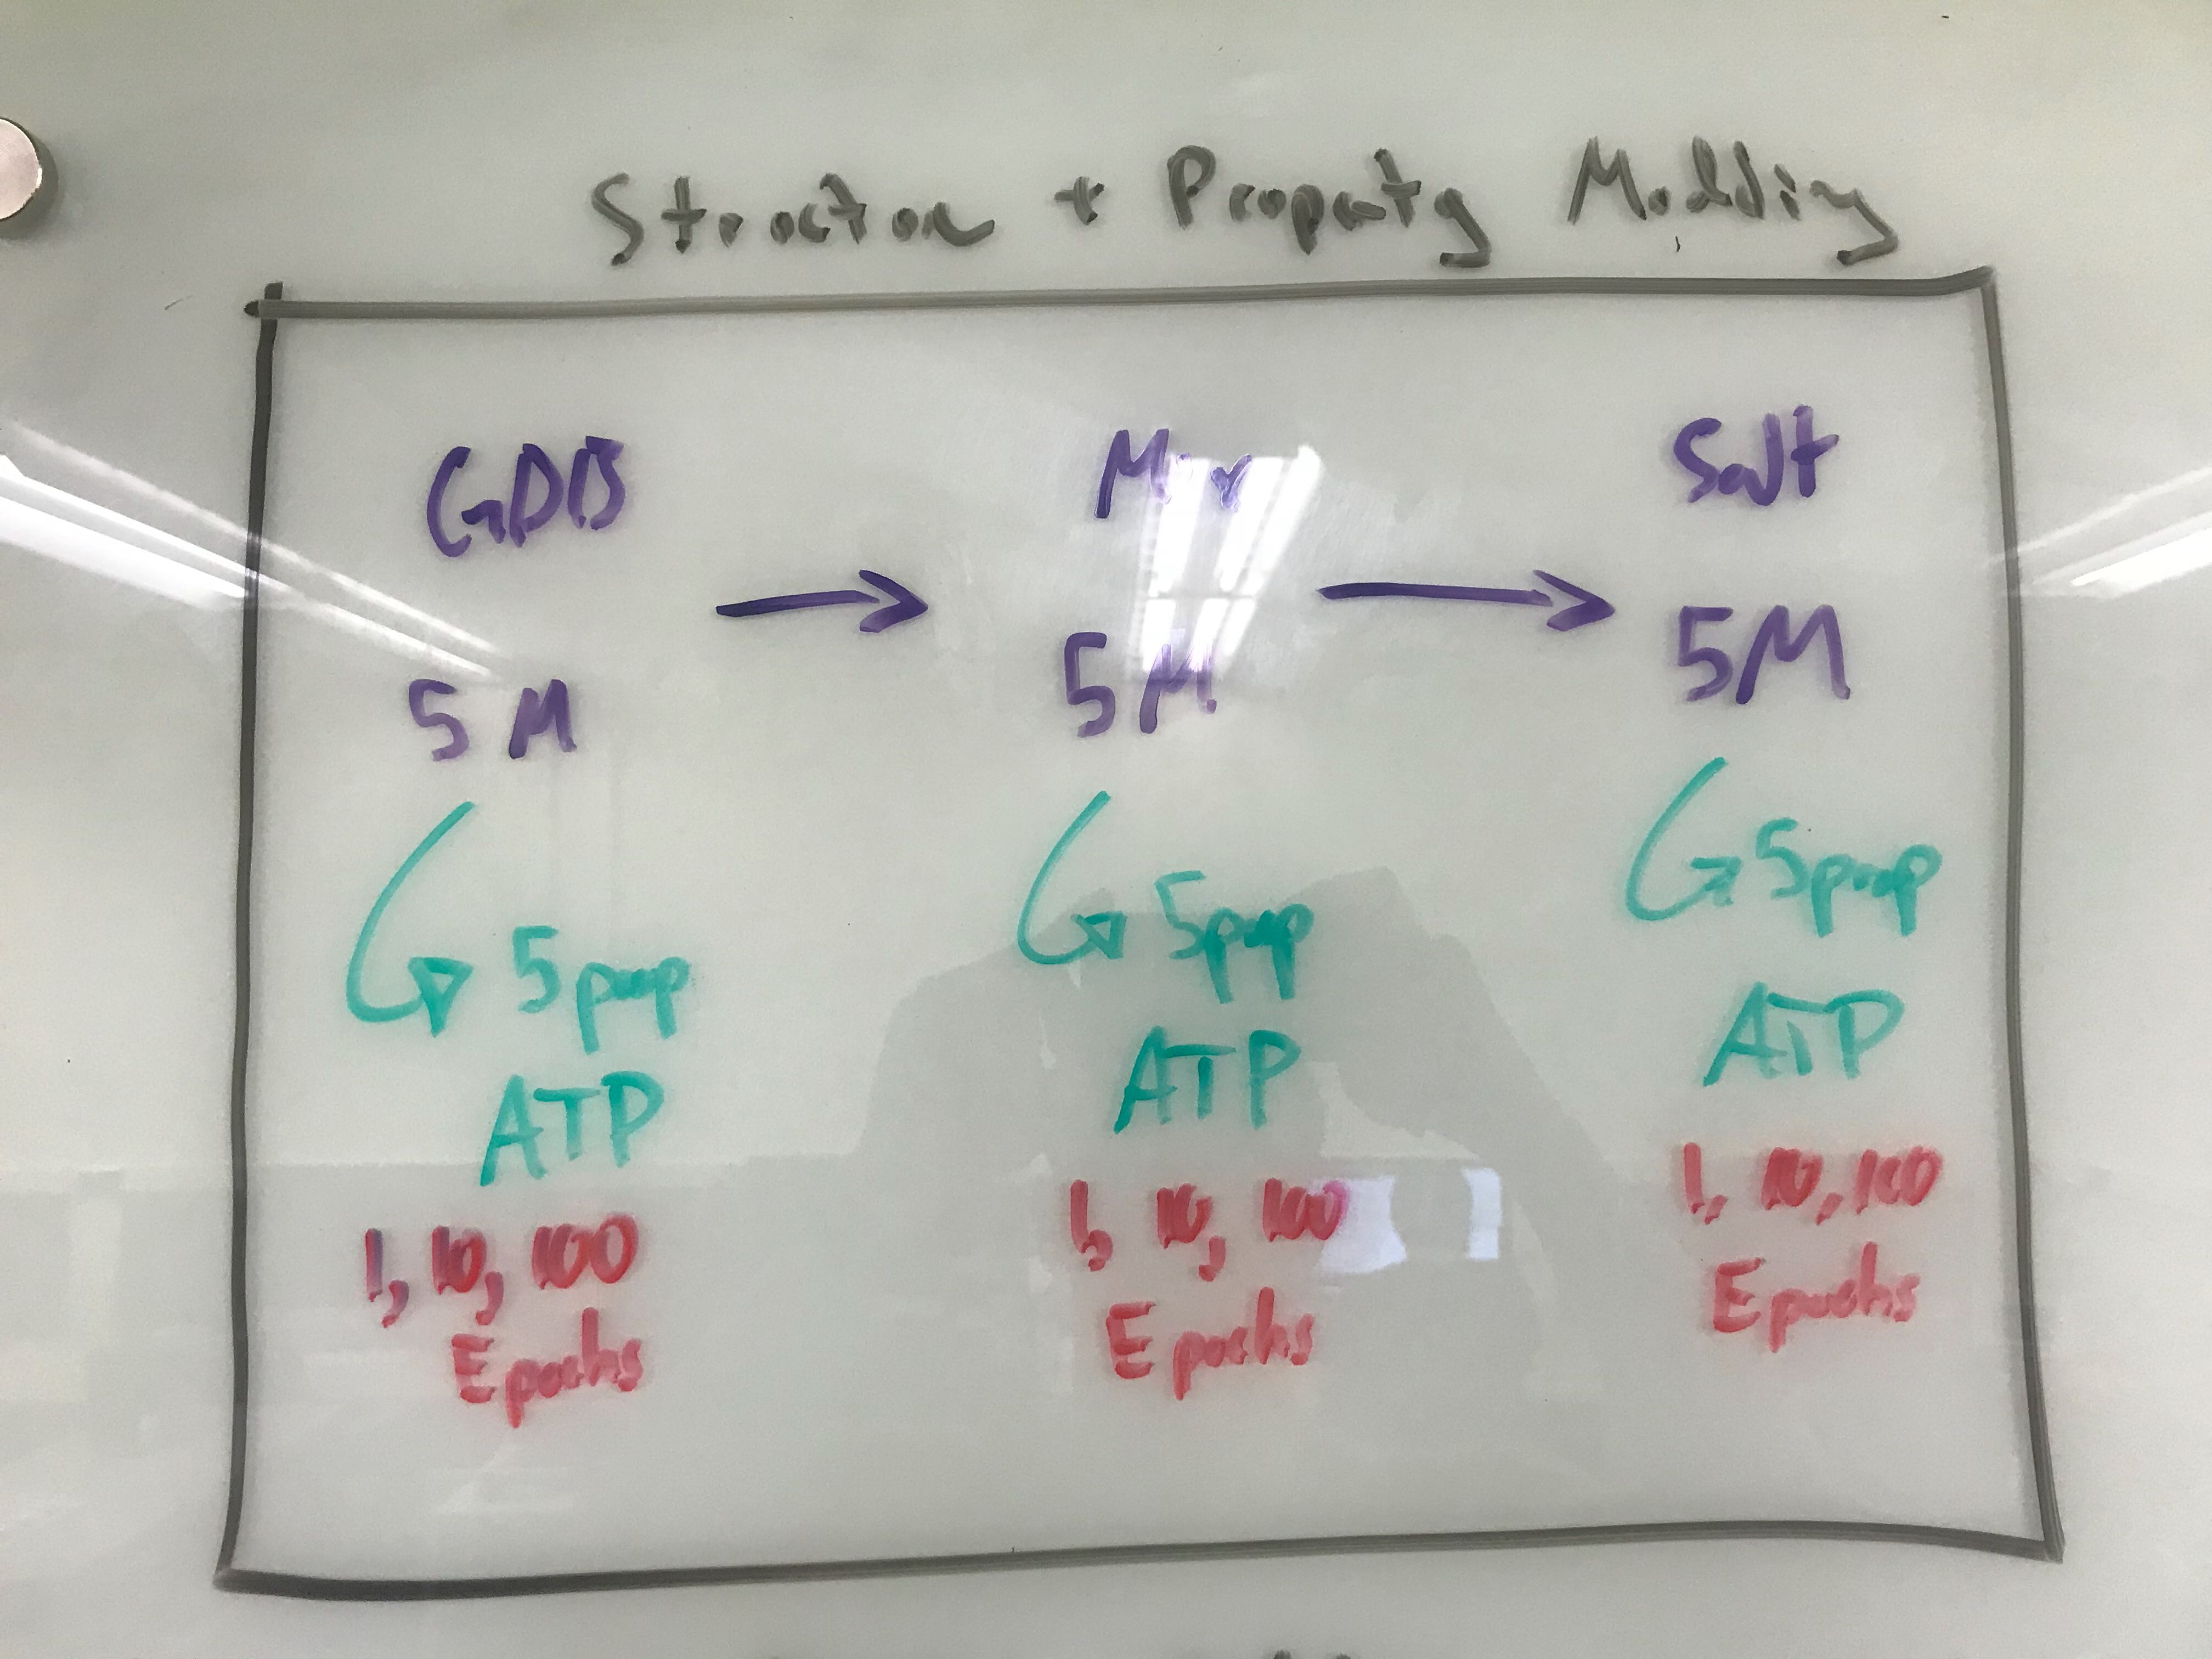 Structure + Property Modeling
GDB
5M
5prop
ATP
1, 10, 100
Epochs
Mix
5M
5prop
ATP
1, 10, 100
Epochs
Salt
5M
5prop
ATP
1, 10, 100
Epochs